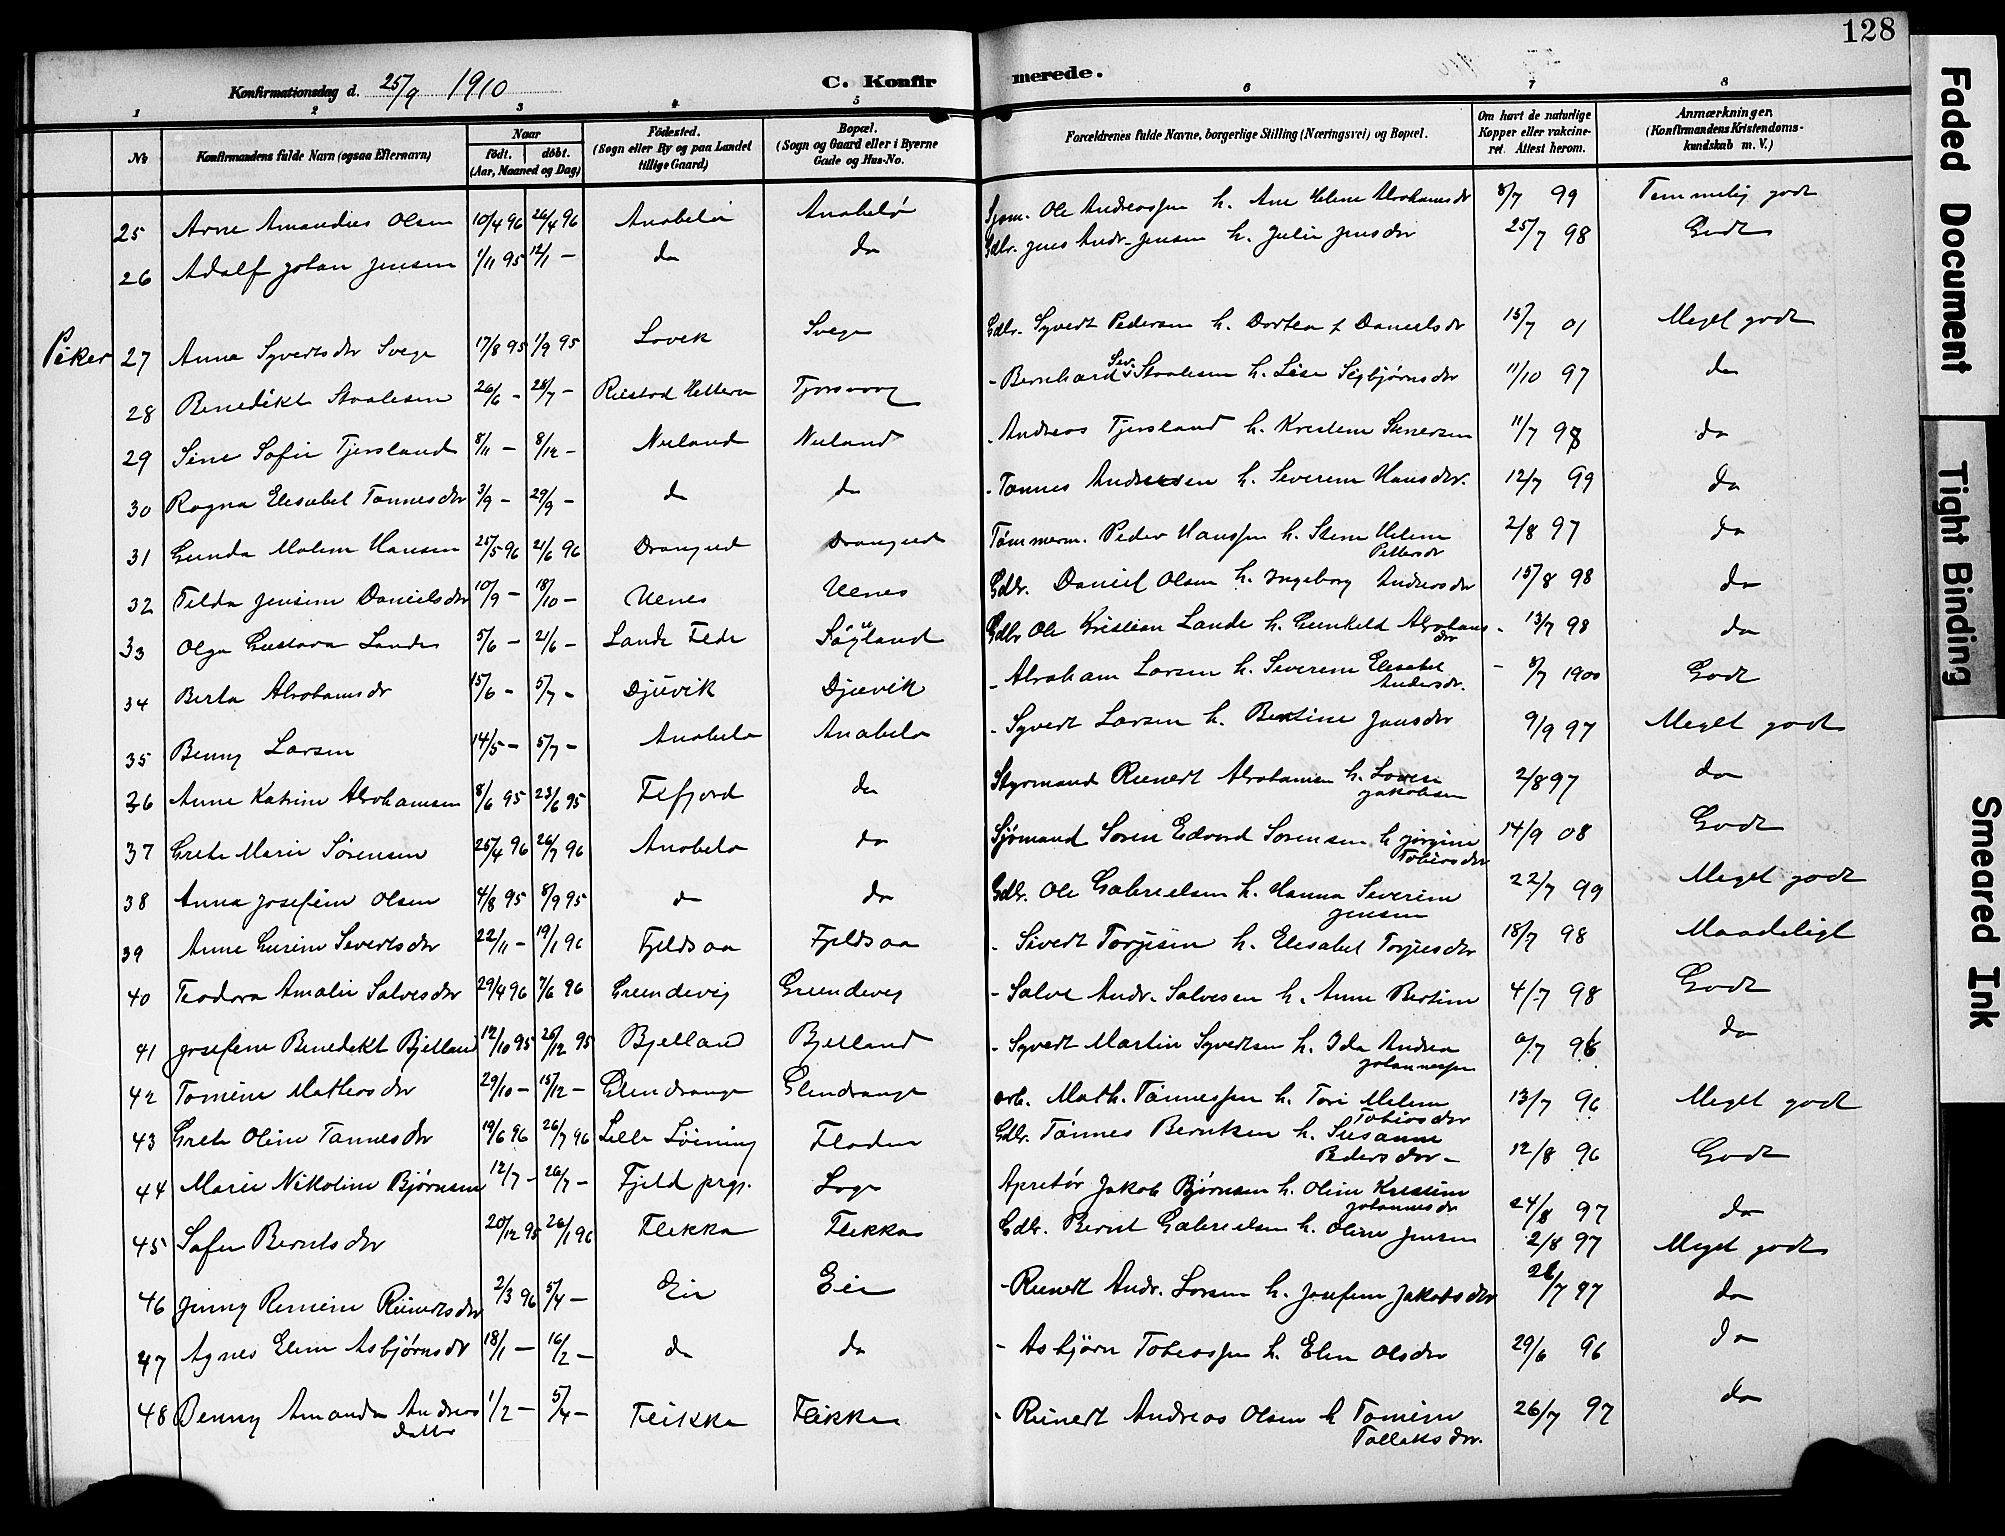 128
Konfirmationsdag d. 25/9 1910
C. Konfirmerede.
1 2 3 4 5 6 7 8
No
Konfirmandens fulde Navn (ogsaa Efternavn)
Naar født. døbt. (Aar, Maaned og Dag)
Fødested. (Sogn eller By og paa Landet tillige Gaard)
Bopæl. (Sogn og Gaard eller i Byerne Gade og Hus-No.
Forældrenes fulde Navne, borgerlige Stilling (Næringsvei) og Bopæl.
Om havt de naturlige Kopper eller vakcineret. Attest herom.
Anmærkninger. (Konfirmandens Kristendomskundskab m. V.)
25 Arne Amandius Olsen 10/4 96 26/4 96 Anabelø Anabelø Sjøm. Ole Andreassen h. Ane Helene Abrahamsdr 8/7 99 Temmelig godt
26 Adolf Johan Jensen 1/11 95 12/1 - do do Gdbr. Jens Andr. Jensen h. Julie Jensdr 25/7 98 Godt
Piker
27 Anna Syvertsdr Svege 17/8 95 1/9 95 Lovek Svege Gdbr. Syvert Pedersen h. Dortea Danielsdr 15/7 01 Meget godt
28 Benedikt Staalesen 26/6 - 28/7 - Restad Hetteren Tjorsvaag - Bernhard Sev. Staalesen h. Lise Sigbjørnsdr 11/10 97 do
29 Sine Sofie Tjersland 8/11 - 8/12 - Nuland Nuland - Andreas Tjersland h. Kristine 11/7 98 do
30 Ragna Elisabet Tønnesdr 3/9 - 29/9 - do do - Tønnes Andersen h. Severine Hansdr. 12/7 99 do
31 Gunda Malene Hansen 25/5 96 21/6 96 Drangeid Drangeid Tømmerm. Peder Hanssen h. Stine Helene Pettersdr 2/8 97 do
32 Tilda Jensine Danielsdr 10/9 - 18/10 - Uenes Uenes Gdbr. Daniel Olsen h. Ingeborg Andreasdr 15/8 98 do
33 Olga Gustava Lande 5/6 - 21/6 - Lande Fede Søyland Gdbr Ole Kristian Lande h. Gunhild Abrahamsdr - 13/7 98 do
34 Berta Abrahamsdr 15/6 - 5/7 - Djuvik Djuvik - Abraham Larsen h. Severine Elisabet Andersdr. - 8/7 1900 Godt
35 Benny Larsen 14/5 - 5/7 - Anabelø Anabelø - Syvert Larsen h. Bertine Jansdr 9/9 97 Meget godt
36 Anne Katrine Abrahamsen 8/6 95 23/6 95 Fefjord do Styrmand Reinert Abrahamsen h. Lovise Jakobsen 2/8 97 do
37 Grete Marie Sørensen 25/4 96 26/7 96 Anabelø do Sjømand Søren Edvard Sørensen h Jørgine Tobiasdr 14/9 08 Godt
38 Anna Josefine Olsen 4/8 95 8/9 95 do do Gdbr. Ole Gabrielsen h. Hanna Severine Jensen 22/7 99 Meget godt
39 Anne Gurine Sivertsdr 22/11 - 19/1 96 Fjeldsaa Fjeldsaa - Sivert Torjusen h. Elisabet Torjusdr 18/7 98 Maadeligt
40 Teodora Amalie Salvesdr 29/4 96 7/6 96 Grundevig Grundevig - Salve Andr. Salvesen h. Anne Bertine 4/7 98 Godt
41 Josefine Benedikt Bjelland 12/10 95 26/12 95 Bjelland Bjelland - Syvert Martin Syvertsen h. Ida Andrea Johannessen 6/7 96 do
42 Tomine Mathiasdr 29/10 - 15/12 - Glendrange Glendrange arb. Math. Tønnessen h. Tori Malene Tobiasdr 13/7 96 Meget godt
43 Grete Oline Tønnesdr 19/6 96 26/7 96 Lille Løining Floden Gdbr. Tønnes Berntsen h. Susanne Pedersdr - 12/8 96 Godt
44 Marie Nikoline Bjørnsen 12/7 - 26/7 - Fjeld prgj. Loge Apretør Jakob Bjørnsen h. Oline Kristine Johannesdr 24/8 97 do
45 Sofie Berntsdr 20/12 95 26/1 96 Flikka Flikka Gdbr. Bernt Gabrielsen h. Oline Jensen 2/8 97 Meget godt
46 Jenny Remine Reinertsdr 2/3 96 5/4 - Eie Eie - Reinert Andr. Larsen h. Josefine Jakobsdr 26/7 97 do
47 Agnes Eline Asbjørnsdr 18/1 - 16/2 - do do - Asbjørn Tobiassen h. Elen Olsdr 29/6 96 do
48 Benny Amanda Andreasdatter 1/2 - 5/4 - Flikka Flikka - Reinert Andreas Olsen h Tomine Tallaksdr. 26/7 97 do
Faded Document
Tight Binding
Smeared Ink